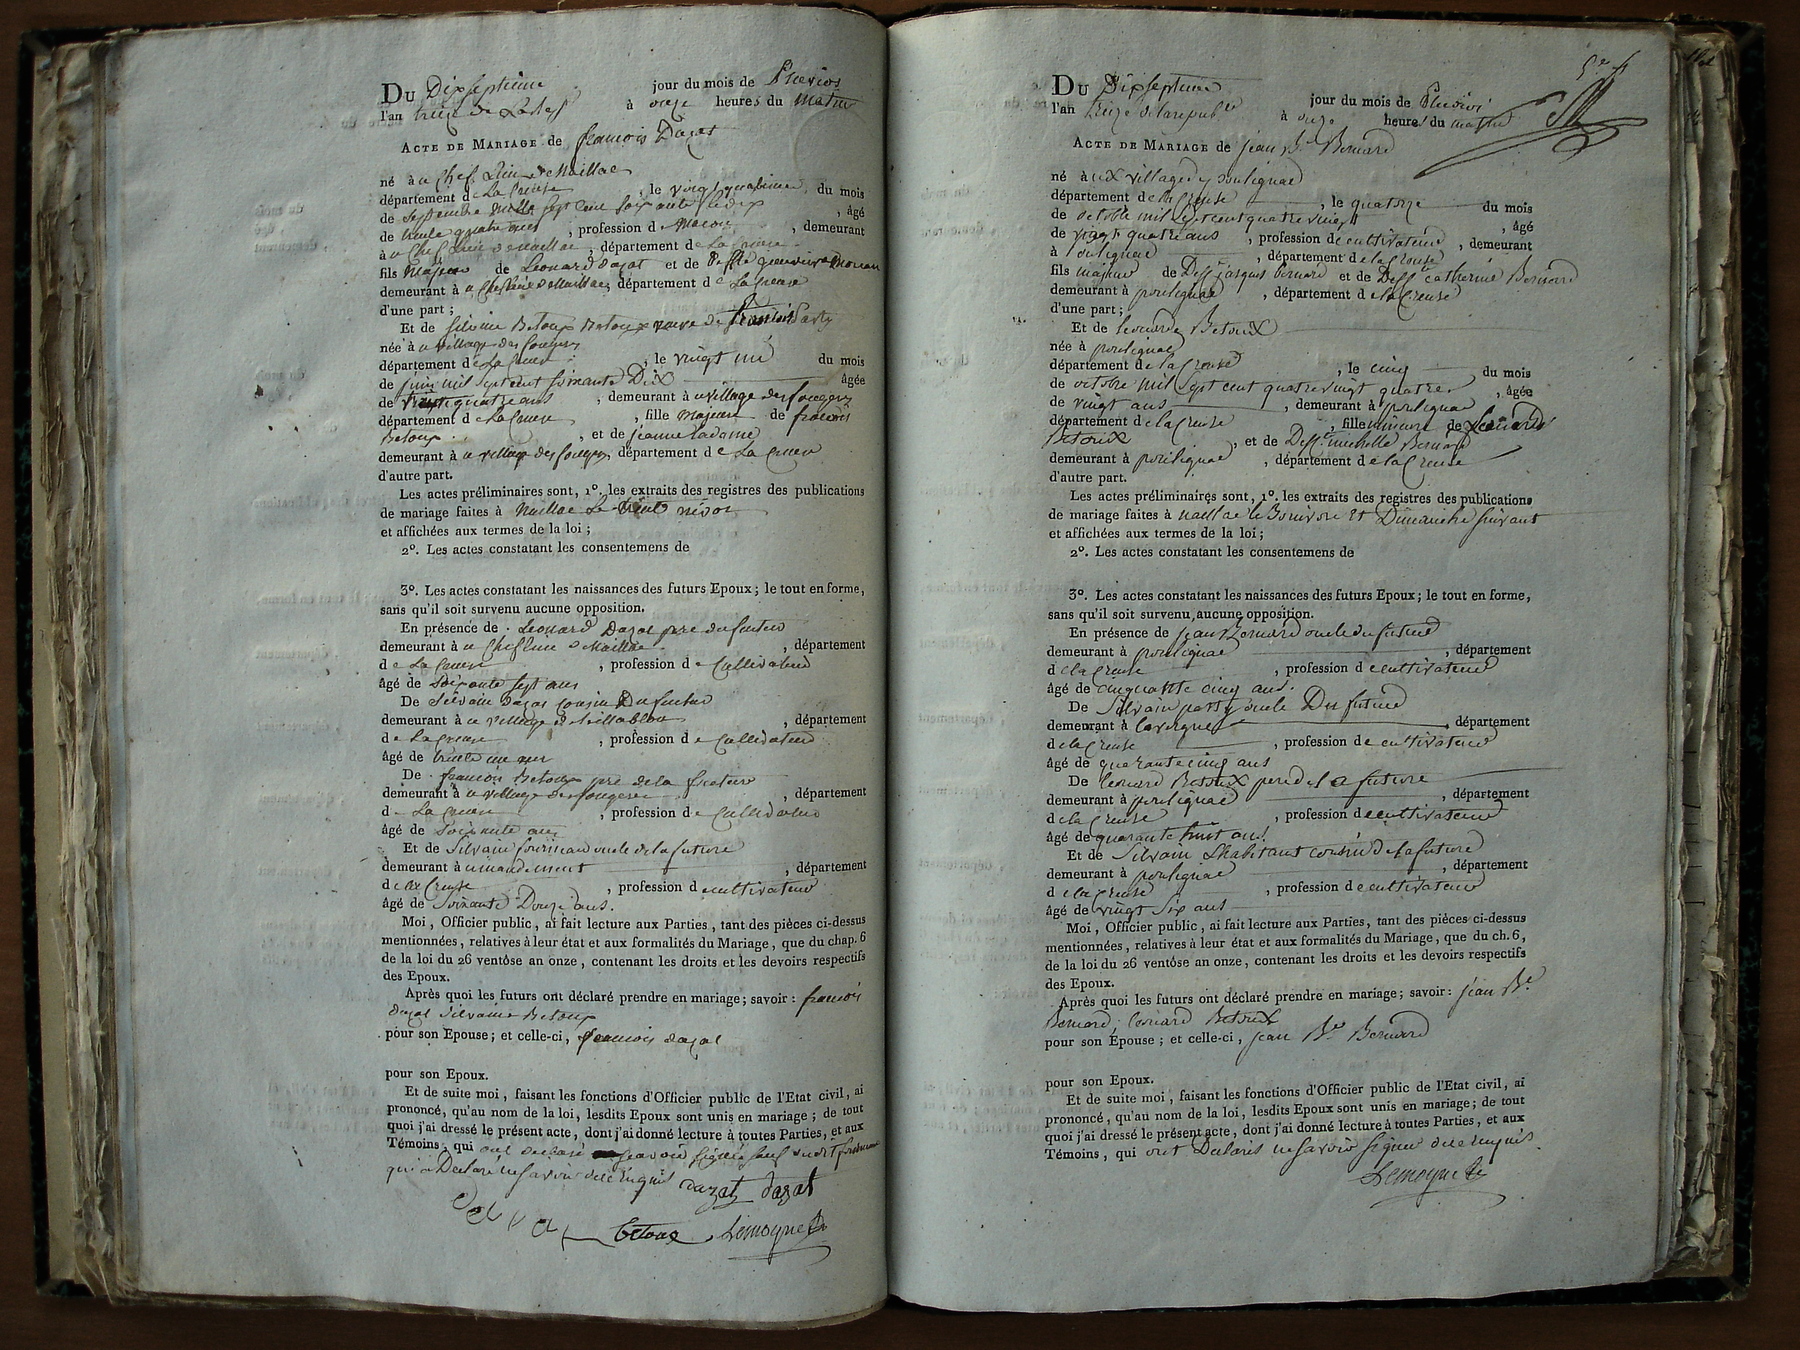 Du Dixseptieme jour du mois de Pluvios
l'an treize de La Rep à onze heures du matin
Acte de Mariage de francois Dazat
né à u Chef Lieu de Naillac
département de La Creuse, le vingt quatrieme du mois
de Septembre Mille Sept Cent Soixante et dix, âgé
de trente quatre ans, profession de Macon, demeurant
à u Chef Lieu de naillac, département de La Creuse
fils Majeur de Leonard dazat et de Deffte genevieve
demeurant à u Cheflieu de Naillac, département de La Creuse
d'une part;
Et de Silvine Betoux veuve de
née à u village des fougeres
département de La Creuse, le vingt un du mois
de juin mil Sept cent soixante Dix âgée
de trente quatre ans, demeurant à u village des fougeres
département de La Creuse, fille Majeure de francois
Betoux, et de jeanne ladame
demeurant à u village des fougeres, département de La Creuse
d'autre part.
Les actes préliminaires sont, 1º. les extraits des registres des publications
de mariage faites à Naillac Le trente nivos
et affichées aux termes de la loi;
2º. Les actes constatant les consentemens de
3º. Les actes constatant les naissances des futurs Epoux; le tout en forme,
sans qu'il soit survenu aucune opposition.
En présence de Leonard Dazat pere du futur
demeurant à u Cheflieu de Naillac, département
de La Creuse, profession de Cultivateur
âgé de Soixante Sept ans
De Silvain Dazat cousin Du futur
demeurant à u village, département
de La Creuse, profession de Cultivateur
âgé de trente un ans
De francois Betoux pere de la future
demeurant à u village des fougeres, département
de La Creuse, profession de Cultivateur
âgé de Soixante ans
Et de Silvain fourneau oncle de la future
demeurant à, département
de la Creuse, profession de cultivateur
âgé de Soixante Douze ans.
Moi, Officier public, ai fait lecture aux Parties, tant des pièces ci-dessus
mentionnées, relatives à leur état et aux formalités du Mariage, que du chap. 6
de la loi du 26 ventôse an onze, contenant les droits et les devoirs respectifs
des Epoux.
Après quoi les futurs ont déclaré prendre en mariage; savoir: francois
dazat Silvaine Betoux
pour son Epouse; et celle-ci, francois dazat
pour son Epoux.
Et de suite moi, faisant les fonctions d'Officier public de l'Etat civil, ai
prononcé, qu'au nom de la loi, lesdits Epoux sont unis en mariage; de tout
quoi j'ai dressé le présent acte, dont j'ai donné lecture à toutes Parties, et aux
Témoins, qui ont declaré savoir signer sauf
qui a Declaré ne savoir de ce enquis dazat dazat
betoux Lemoyne
Du Dixseptieme jour du mois de Pluvios
l'an treize de la repub à onze heures du matin
Acte de Mariage de jean Bte Bernard
né à ux village de poulignac
département de la Creuse, le quatorze du mois
de octobre mil Sept cent quatre vingt, âgé
de vingt quatre ans, profession de cultivateur, demeurant
à poulignac, département de la Creuse
fils majeur de Deff jacques bernard et de Deffte Catherine Bernard
demeurant à poulignac, département de la Creuse
d'une part;
Et de leonarde Betoux
née à poulignac
département de la Creuse, le cinq du mois
de octobre mil Sept cent quatre vingt quatre, âgée
de vingt ans, demeurant à poulignac
département de la Creuse, fille mineure de Leonard
Betoux, et de Deffte michelle Bernard
demeurant à poulignac, département de la Creuse
d'autre part.
Les actes préliminaires sont, 1º. les extraits des registres des publications
de mariage faites à naillac le 30 nivose et Dimanche suivant
et affichées aux termes de la loi;
2º. Les actes constatant les consentemens de
3º. Les actes constatant les naissances des futurs Epoux; le tout en forme,
sans qu'il soit survenu aucune opposition.
En présence de jean Bernard oncle du futur
demeurant à poulignac, département
de la Creuse, profession de cultivateur
âgé de cinquante cinq ans.
De Silvain party oncle Du futur
demeurant à lavergne, département
de la Creuse, profession de cultivateur
âgé de quarante cinq ans
De leonard Betoux pere de la future
demeurant à poulignac, département
de la Creuse, profession de cultivateur
âgé de quarante huit ans
Et de Silvain Lhabitant cousin de la future
demeurant à poulignac, département
de la Creuse, profession de cultivateur
âgé de vingt Six ans
Moi, Officier public, ai fait lecture aux Parties, tant des pièces ci-dessus
mentionnées, relatives à leur état et aux formalités du Mariage, que du ch. 6,
de la loi du 26 ventôse an onze, contenant les droits et les devoirs respectifs
des Epoux.
Après quoi les futurs ont déclaré prendre en mariage; savoir: jean Bte
Bernard, leonard Betoux
pour son Epouse; et celle-ci, jean Bte Bernard
pour son Epoux.
Et de suite moi, faisant les fonctions d'Officier public de l'Etat civil, ai
prononcé, qu'au nom de la loi, lesdits Epoux sont unis en mariage; de tout
quoi j'ai dressé le présent acte, dont j'ai donné lecture à toutes Parties, et aux
Témoins, qui ont Declarés ne Savoir signer de ce enquis
Lemoyne